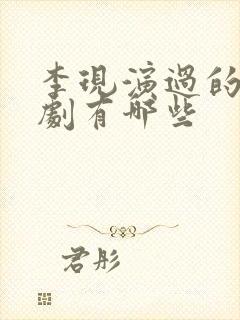 李現演過的
劇有哪些
君彤